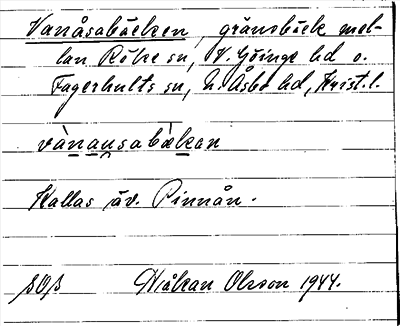 Vanåsabäcken, gränsbäck mel-
lan Röke sn, V. Göinge hd o.
Fagerhults sn, N. Åsbo hd, Krist. l.
vànansabækan
Kallas äv. Pinnån.
Håkan Olsson 1944.